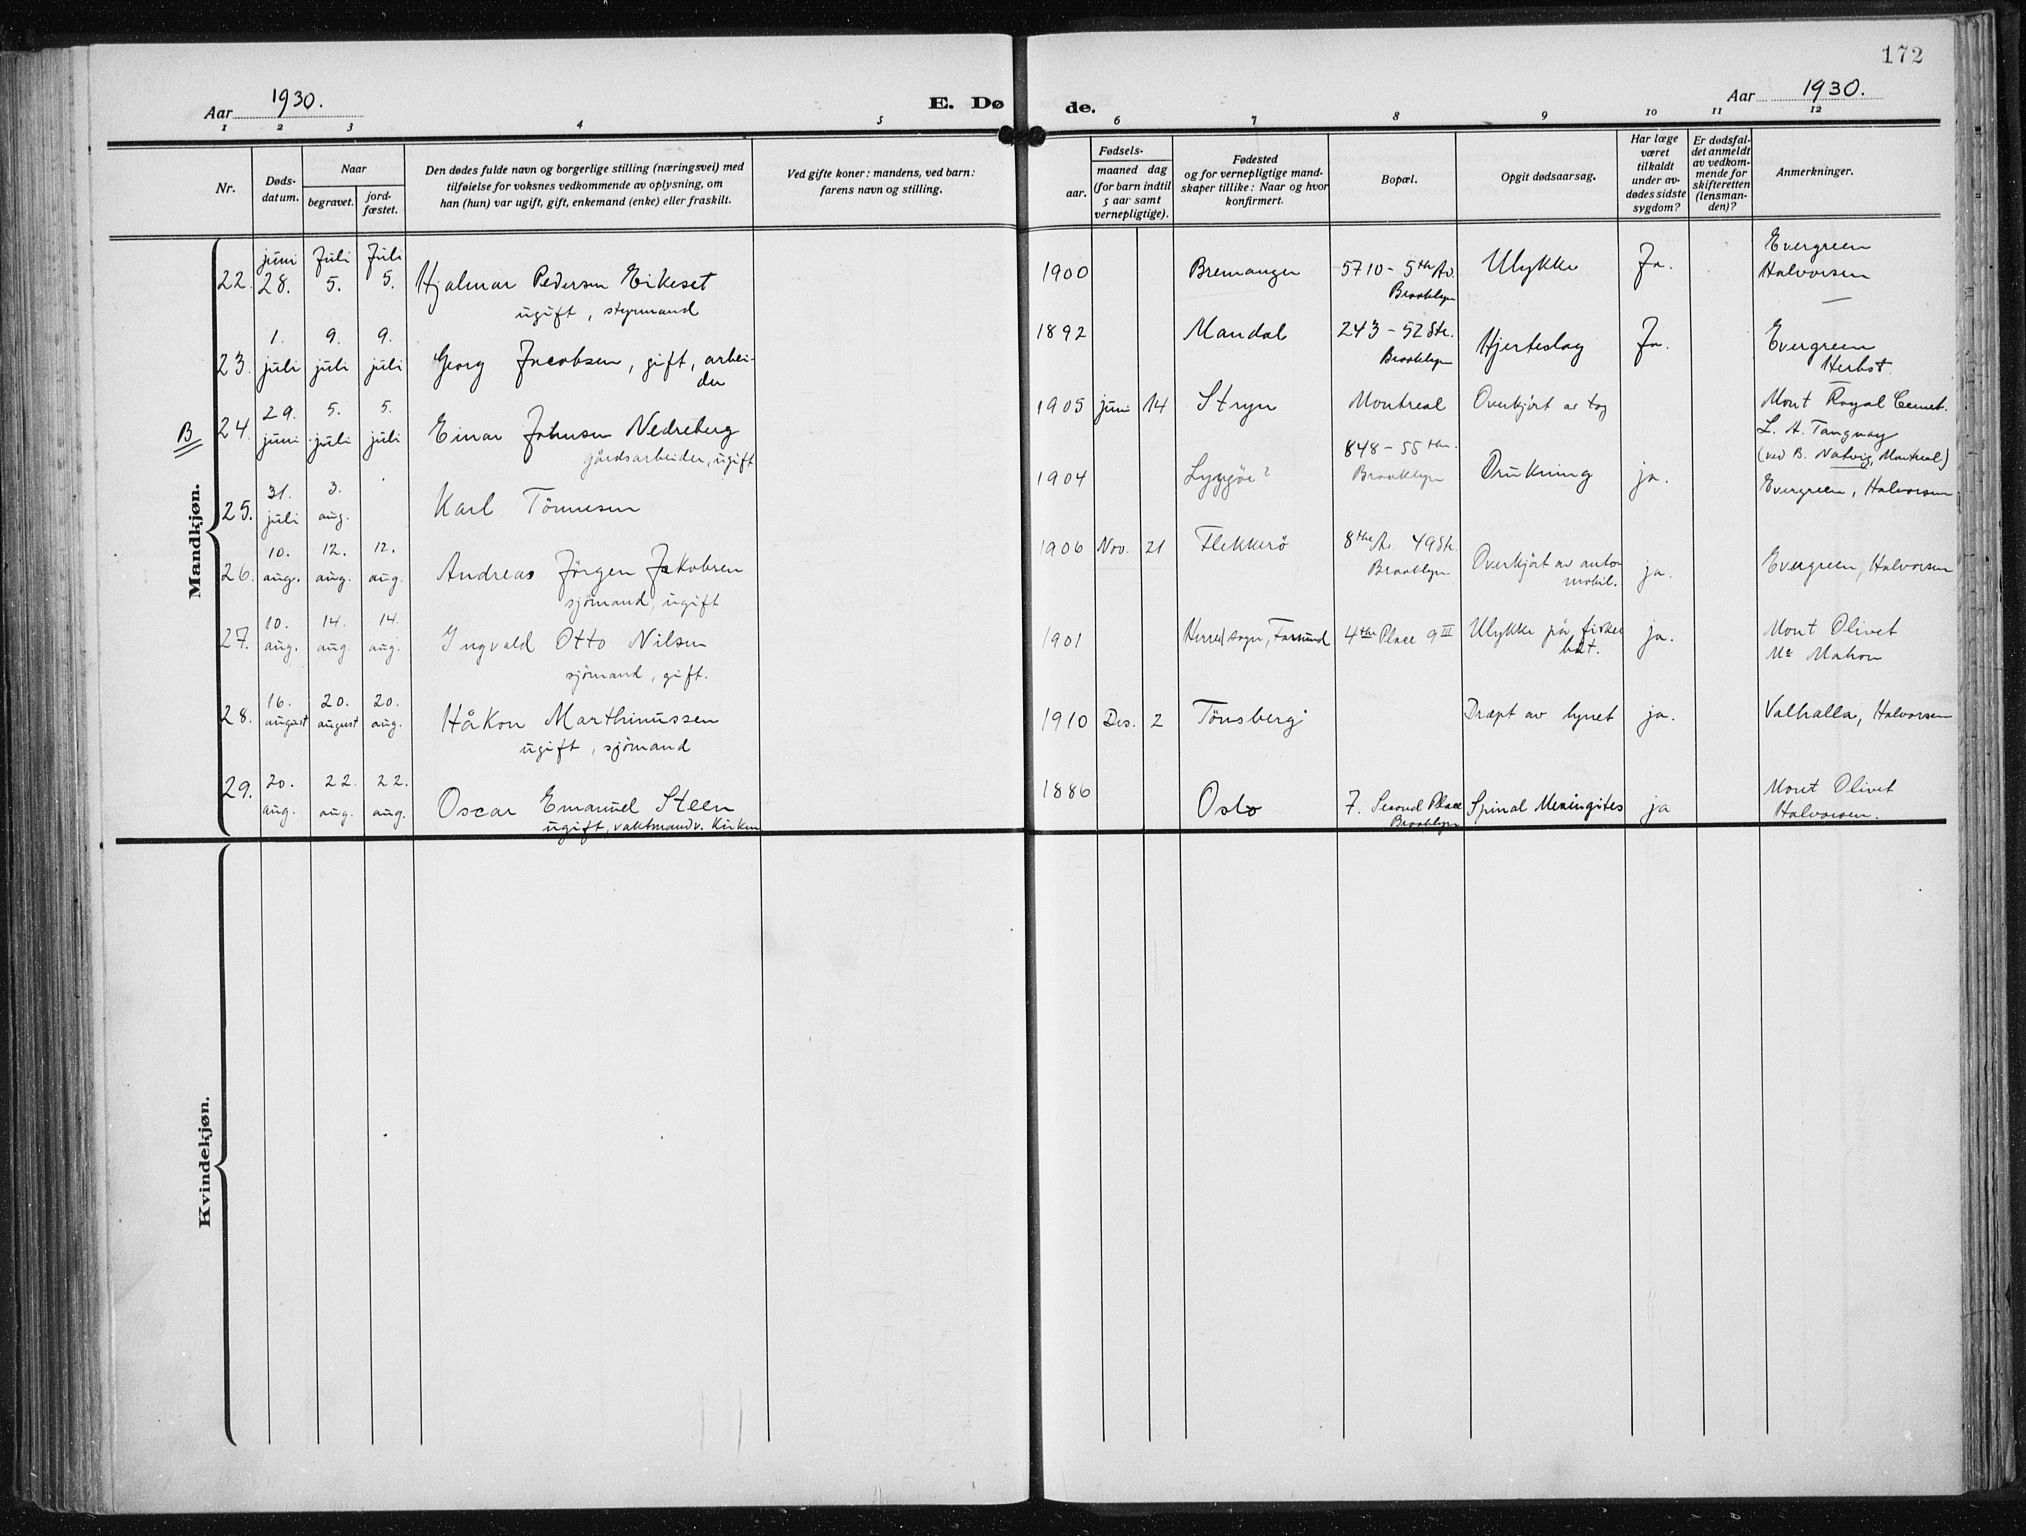 172
Aar 1930.
E. Dø de.
Aar 1930.
1 2 3 4 5 6 7 8 9 10 11 12
Nr.
Døds-
datum.
Naar
begravet.
jord-
fæstet.
Den dødes fulde navn og borgerlige stilling (næringsvei) med
tilføielse for voksnes vedkommende av oplysning, om
han (hun) var ugift, gift, enkemand (enke) eller fraskilt.
Ved gifte koner: mandens, ved barn:
farens navn og stilling.
Fødsels-
aar.
maaned dag
(for barn indtil
5 aar samt
vernepligtige).
Fødested
og for vernepligtige mand-
skaper tillike: Naar og hvor
konfirmert.
Bopæl.
Opgit dødsaarsag.
Har læge
været
tilkaldt
under av-
dødes sidste
sygdom?
Er dødsfal-
det anmeldt
av vedkom-
mende for
skifteretten
(lensman-
den)?
Anmerkninger.
Mandkjøn.
22. juni 28. Juli 5. Juli 5. Hjalmar Pedersen Eikeset
ugift, styrmand
1900 Bremanger 5710 - 5th Av. Brooklyn Ulykke Ja. Evergreen
Halvorsen
23. 1. juli 9. juli 9. juli Georg Jacobsen, gift, arbei-
der
1892 Mandal 243 - 52 Str. Brooklyn Hjerteslag Ja. Evergreen
Herbst.
B
24. 29. juni 5. juli 5. juli Einar Johnsen Nedreberg
gårdsarbeider, ugift
1905 juni 14 Stryn Montreal Overkjört av tog Mont Royal Cemet.
L. A. Tanguay
(ved B. Natvig, Montreal)
25. 31. juli 3. aug. Karl Tönnesen
1904 Lyngör? 848 - 55 the. Brooklyn Drukning ja. Evergreen, Halvorsen
26. 10. aug. 12. aug. 12. aug. Andreas Jörgen Jakobsen
sjömand, ugift
1906 Nov. 21 Flekkerö 8the Av. 49 Str. Brooklyn Overkjört av auto-
mobil. ja. Evergreen, Halvorsen
27. 10. aug. 14. aug. 14. aug. Ingvald Otto Nilsen
sjömand, gift.
1901 Herred sogn, Farsund 4the Place 9 II Ulykke på fisker
båt. ja. Mont Olivet
Mc Mahon
28. 16. august 20. august 20. aug. Håkon Marthinussen
ugift, sjömand
1910 Des. 2 Tönsberg Dræpt av lynet ja. Valhalla, Halvorsen
29. 20. aug. 22. aug. 22. aug. Oscar Emanuel Steen
ugift, vaktmand v. Kirken
1886 Oslo 7. Second Place Brooklyn Spinal Meningites ja Mont Olivet
Halvorsen.
Kvindekjøn.